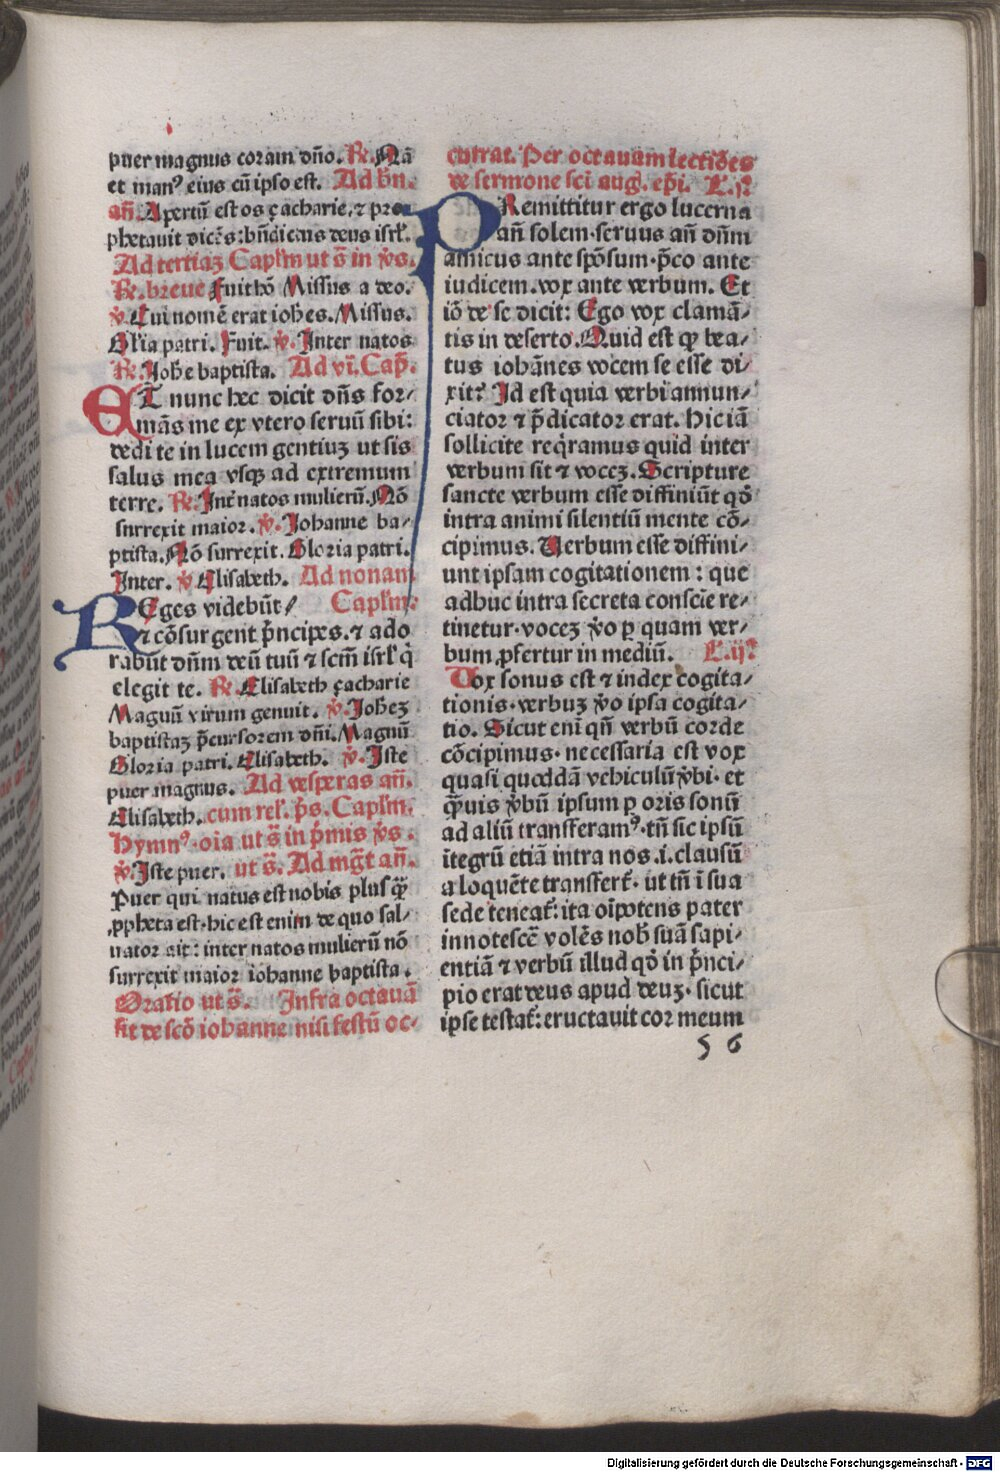 puer magnus coram dño. R. Nã
et manꝰ eius cũ ipso est. Ad bñ.
añ. Apertũ est os çacharie, ⁊ pro-
phetauit dicẽs: bñdictus deus isrl'.
Ad tertiaꝫ Capl'm ut s̃ in v̓s.
R. breue Fuit hõ Missus a deo.
v̓. Cui nomẽ erat ioh̃es. Missus.
Gl'ia patri. Fuit. v̓. Inter natos
R. Ioh̃e baptista. Ad vi. Cap̃.
ET nunc hec dicit dñs for-
mãs me ex vtero seruũ sibi:
dedi te in lucem gentiuꝫ ut sis
salus mea vsqꝫ ad extremum
terre. R. Int̃ natos mulierũ. Nõ
surrexit maior. v̓. Iohanne ba-
ptista. Nõ surrexit. Gloria patri.
Inter. v̓ Elisabeth. Ad nonam
REges videbũt/ Capl'm.
⁊ cõsurgent p̃ncipes. ⁊ ado
rabũt dñm deũ tuũ ⁊ scm̃ isrl' q̃
elegit te. R. Elisabeth çacharie
Magnũ virum genuit. v̓. Ioh̃eꝫ
baptistaꝫ p̃cursorem dñi. Magnũ
Gloria patri. Elisabeth. v̓. Iste
puer magnus. Ad vesperas añ.
Elisabeth. cum rel'. p̃s. Capl'm.
hymnꝰ. oia ut s̃ in p̃mis v̓s.
v̓. Iste puer. ut s̃. Ad mg̃t añ.
Puer qui natus est nobis plusq̃ꝫ
ꝓpheta est. hic est enim de quo sal-
uator ait: inter natos mulierũ nõ
surrexit maior iohanne baptista.
Oratio ut s̃. Infra octauã
fit de scõ iohanne nisi festũ oc-
currat. Per octauam lectiões
de sermone sci aug. ep̃i. L. j.
PRemittitur ergo lucerna
añ solem. seruus añ dñm
amicus ante spõsum. p̃co ante
iudicem. vox ante verbum. Et
iõ de se dicit: Ego vox clamã-
tis in deserto. Quid est ꝙ bea-
tus iohãnes vocem se esse di-
xit? Id est quia verbi annun-
ciator ⁊ p̃dicator erat. Hic iã
sollicite req̃ramus quid inter
verbum sit ⁊ voceꝫ. Scripture
sancte verbum esse diffiniũt qđ
intra animi silentiũ mente cõ-
cipimus. Uerbum esse diffini-
unt ipsam cogitationem: que
adhuc intra secreta consciẽ re-
tinetur. voceꝫ v̓o ꝑ quam ver-
bum ꝓfertur in mediũ. L. ij.
Vox sonus est ⁊ index cogita-
tionis. verbuꝫ v̓o ipsa cogita-
tio. Sicut eni qñ verbũ corde
cõcipimus. necessaria est vox
quasi quoddã vehiculũ v̓bi. et
q̃uis v̓bũ ipsum ꝑ oris sonũ
ad aliũ transferamꝰ. tñ sic ipsũ
ĩtegrũ etiã intra nos .i. clausũ
a loquẽte transfert̃. ut tñ ĩ sua
sede teneat̃: ita oĩpotens pater
innotescẽ volẽs nob̃ suã sapi-
entiã ⁊ verbũ illud qđ in p̃nci-
pio erat deus apud deuꝫ. sicut
ipse testat̃: eructauit cor meum
5 6
Digitalisierung gefördert durch die Deutsche Forschungsgemeinschaft - DFG